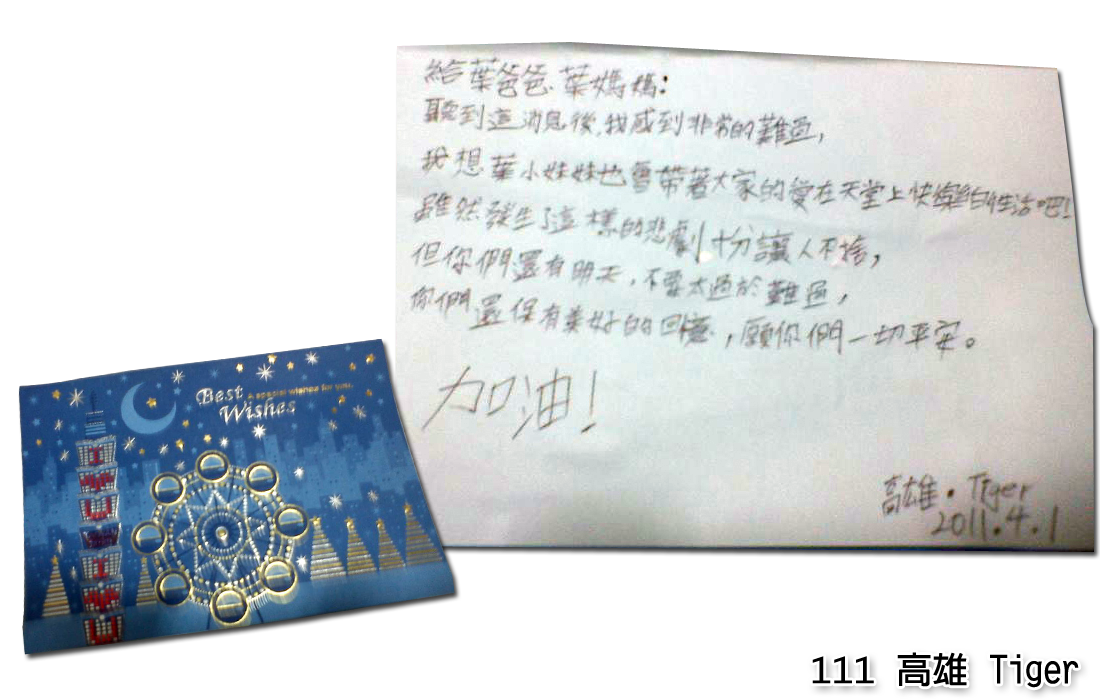 給葉爸爸.葉媽媽:
聽到這消息後,我感到非常的難過,
我想葉小妹妹也會帶著大家的愛在天堂上快樂的生活吧!
雖然發生了這樣的悲劇十分讓人不捨,
但你們還有明天,不要太過於難過,
你們還保有美好的回憶,願你們一切平安。
加油!
高雄·Tiger
2011.4.1
Best
A special wishes for you.
Wishes
111 高雄 Tiger